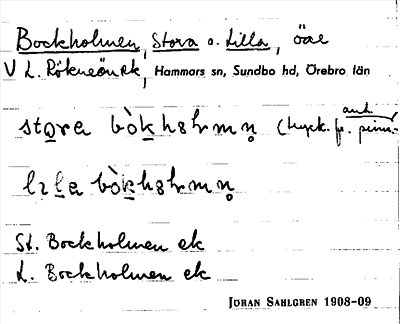 Bockholmen, Stora o. Lilla, öar
V L. Rökneön ek, Hammars sn, Sundbo hd, Örebro län
stora bòkhoɫmn̥ (tryck. fr. ant.
lila bòkhoɫmn̥
St. Bockholmen ek
L. Bockholmen ek
JÖRAN SAHLGREN 1908-09